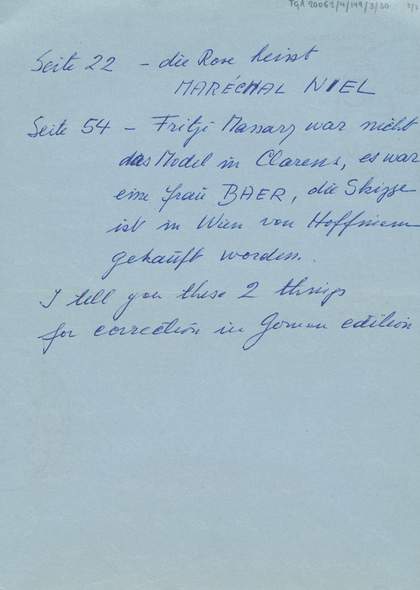 TGA 20062/4/149/3/30 2/2
Seite 22 - die Rose heisst
MARÉCHAL NIEL
Seite 54 - Fritzi Massary war nicht
das Model in Clarens, es war
eine frau BAER, die Skizze
ist in Wien von Hoffmann
gekauft worden.
I tell you these 2 things
for correction in German edition